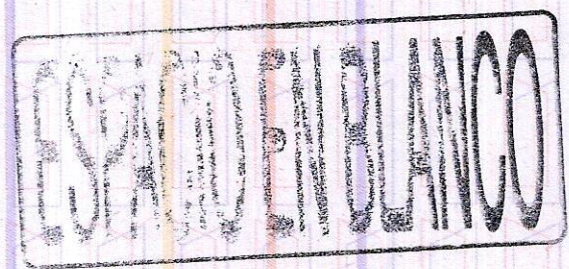 ESPACIO EN BLANCO